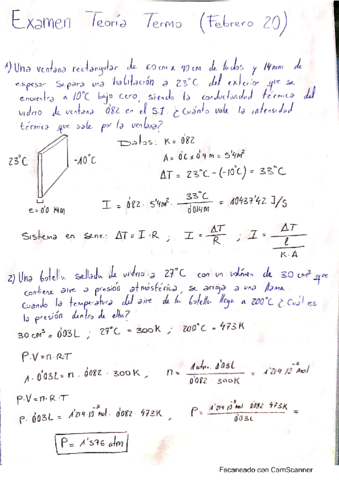 Examen Teoría Termo (Febrero 20)
1) Una ventana rectangular de 60cm x 90cm de lados y 14mm de
espesor separa una habitación a 23°C del exterior que se
encuentra a 10°C bajo cero, siendo la conductividad térmica del
vidrio de ventana 0'82 en el S.I ¿Cuánto vale la intensidad
térmica que sale por la ventana?
Datos: K = 0'82
23°C
-10°C
A = 0'6 x 0'9 m = 5'4 m²
ΔT = 23°C - (-10°C) = 33°C
e = 0'014m
I = 0'82 · 5'4m² · 33°C / 0'014m = 10437'42 J/s
Sistema en serie: ΔT = I · R ; I = ΔT / R ; I = ΔT / (l / K·A)
2) Una botella sellada de vidrio a 27°C con un volumen de 30 cm³ que
contiene aire a presión atmosférica, se arroja a una llama.
Cuando la temperatura del aire de la botella llega a 200°C ¿Cuál es
la presión dentro de ella?
30 cm³ = 0'03L ; 27°C = 300K ; 200°C = 473K
P·V = n·R·T
1 · 0'03L = n · 0'082 · 300K , n = 1atm · 0'03L / 0'082 · 300K = 1'219·10⁻³ mol
P·V = n·R·T
P · 0'03L = 1'219·10⁻³ · 0'082 · 473K , P = 1'219·10⁻³ mol · 0'082 · 473K / 0'03L =
P = 1'576 atm
Escaneado con CamScanner